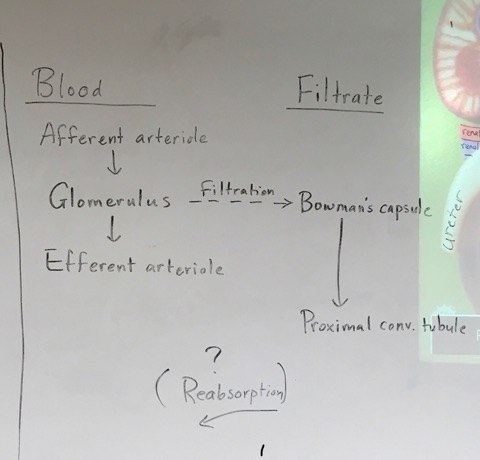 Blood
Filtrate
Afferent arteriole
Glomerulus
Filtration
Bowman's capsule
Efferent arteriole
Proximal conv. tubule
?
(Reabsorption)
renal
renal
Ureter